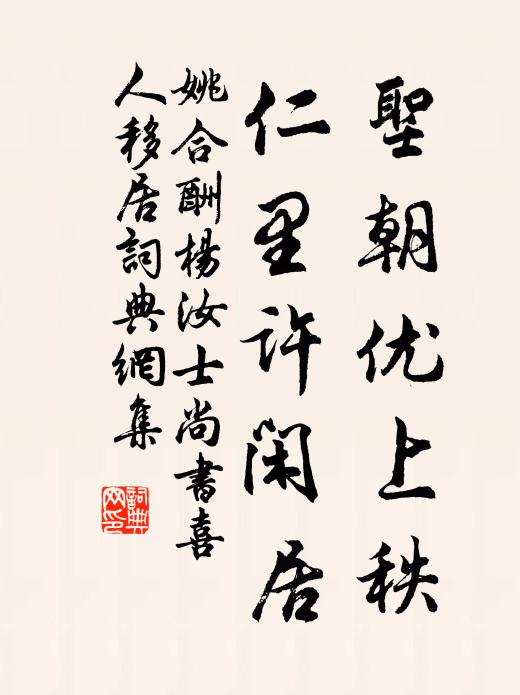 聖朝优上秩
仁里许闲居
姚合酬楊汝士尚書喜
人移居詞典網集
詞典网印